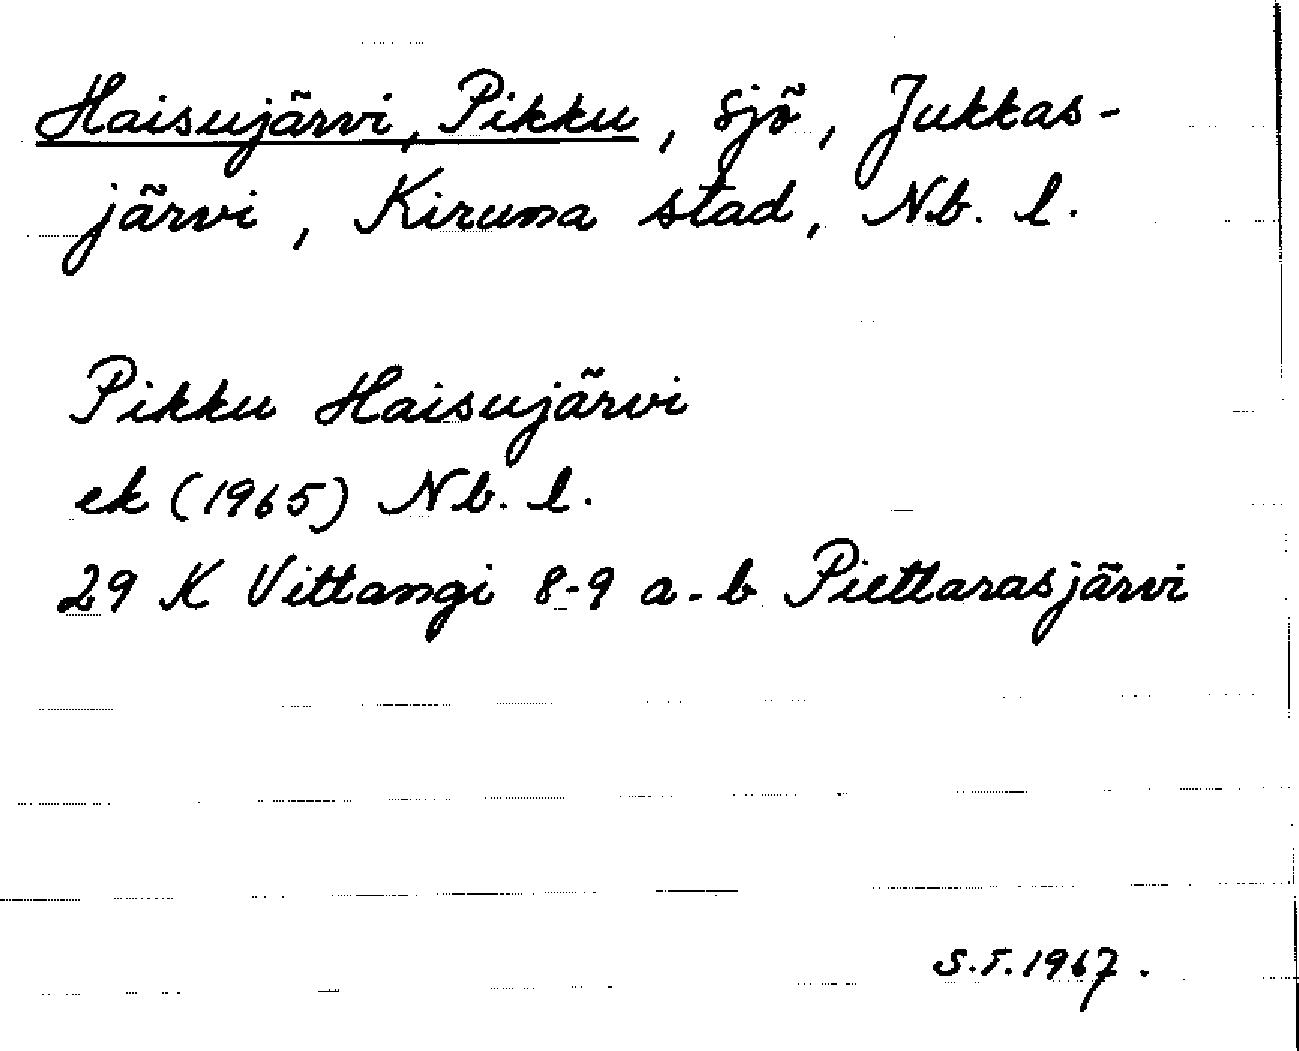 Haisujärvi, Pikku, sjö, Jukkas-
järvi, Kiruna stad, Nb. l.
Pikku Haisujärvi
ek (1965) Nb. l.
29 K Vittangi 8-9 a-b Piettarasjärvi
S.F. 1967.